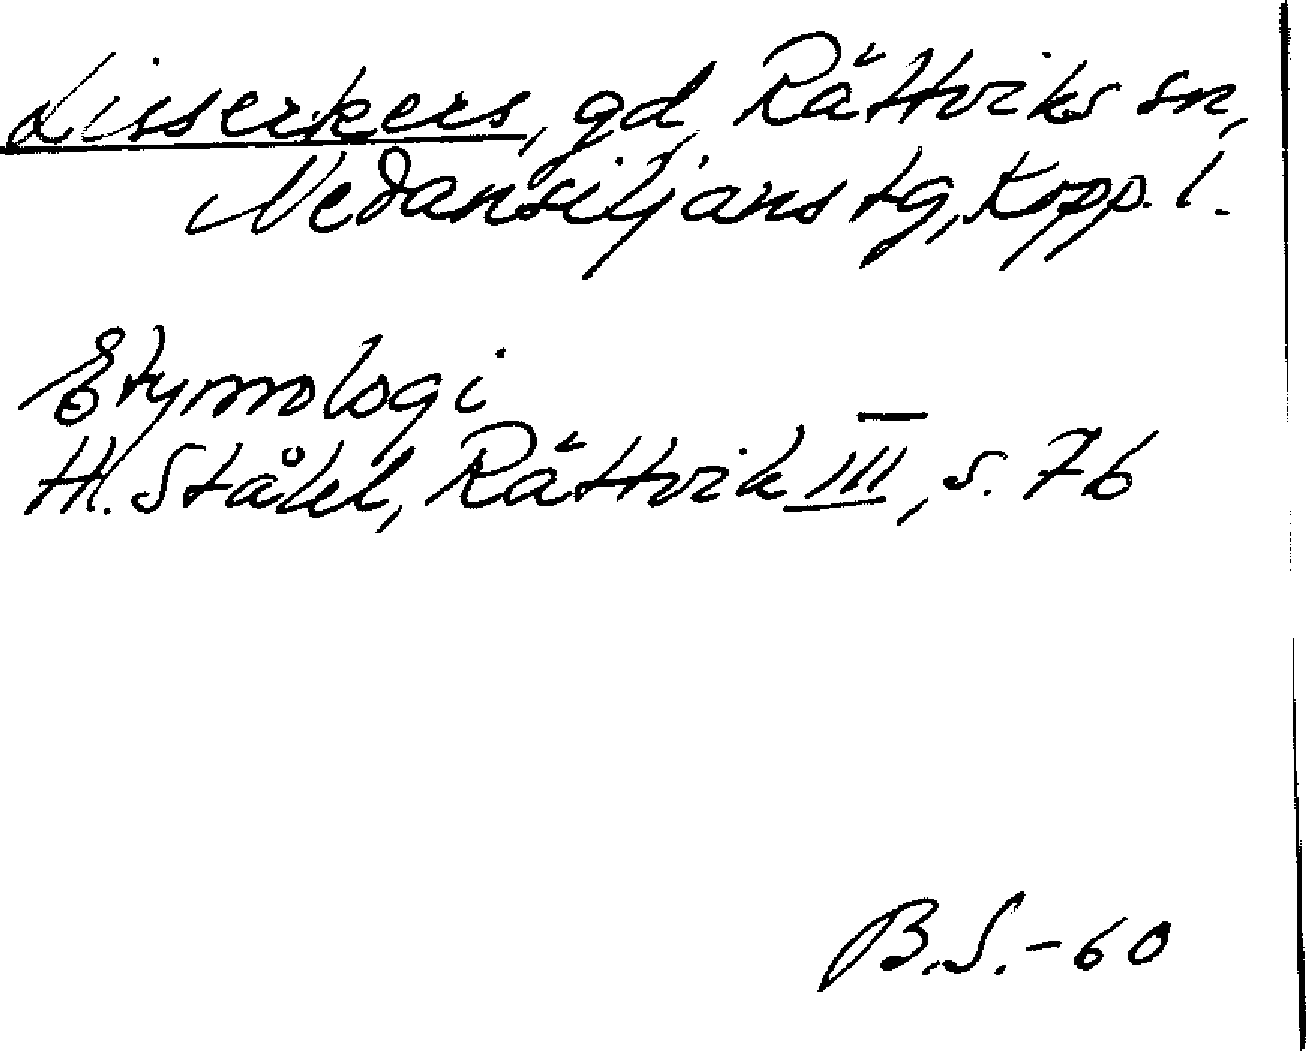 Lisserkers, gd, Rättviks sn,
Nedansiljans tg, Kopp. l.
Etymologi
H. Ståhl, Rättvik III, s. 76
B.S.-60